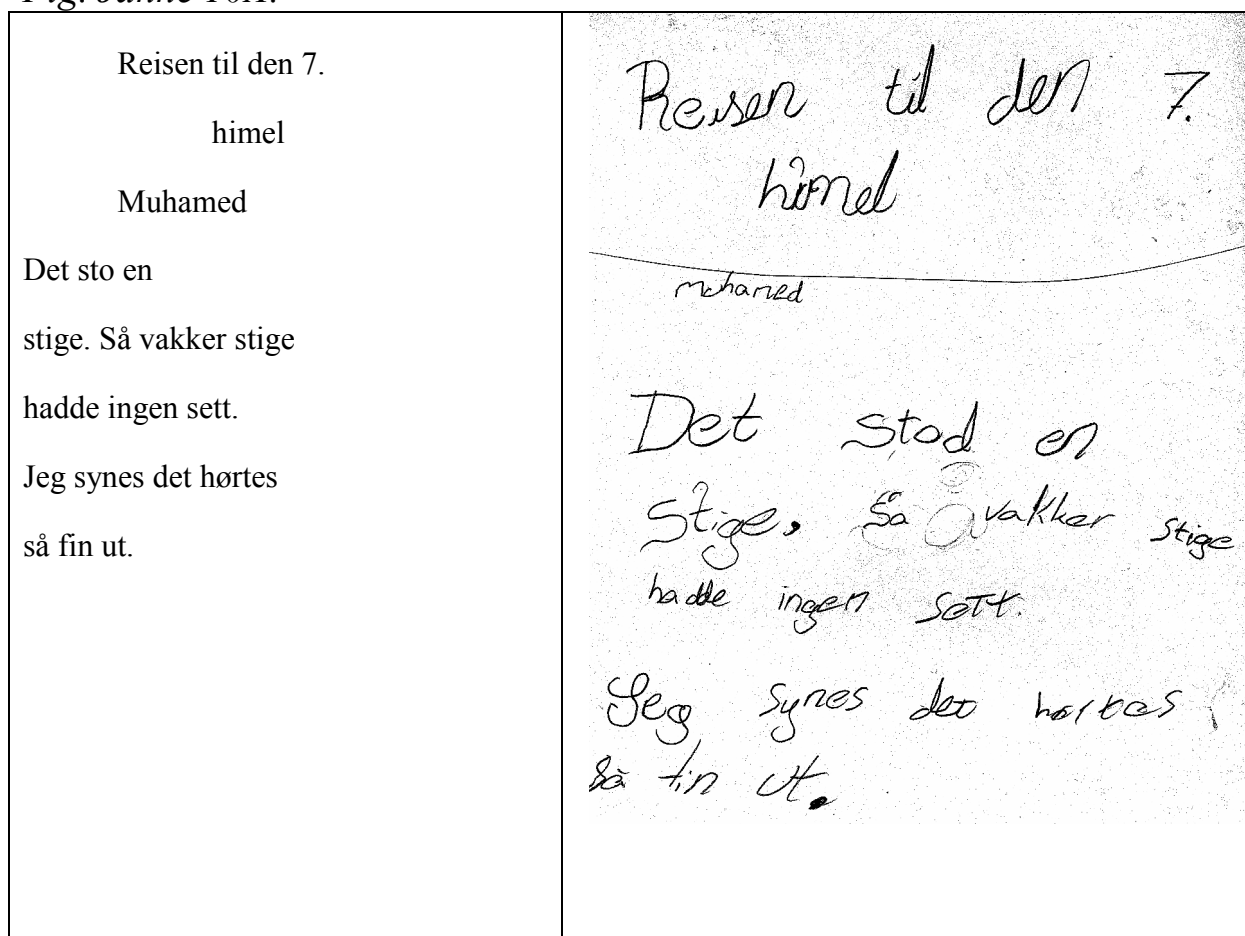 Reisen til den 7.
himel
Muhamed
Det sto en
stige. Så vakker stige
hadde ingen sett.
Jeg synes det hørtes
så fin ut.
Reisen til den 7.
himel
muhamed
Det stod en
stige. Så vakker stige
hadde ingen sett.
Jeg synes det hørtes
så fin ut.